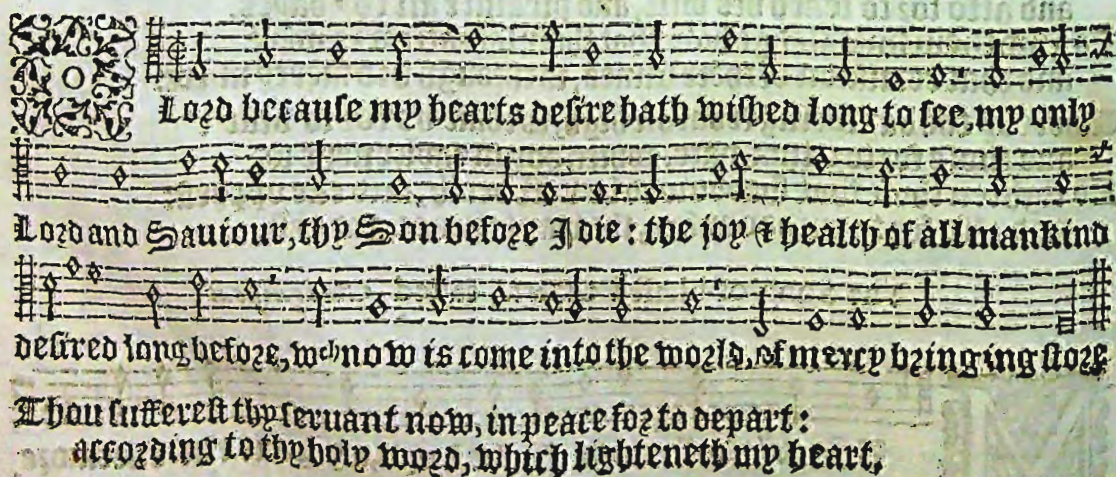 O Lord becauſe my hearts deſire hath wiſhed long to ſee, my only
Lord and Sauiour, thy Son before I die: the joy & health of all mankind
deſired long before, wch now is come into the world, of mercy bringing ſtore
Thou ſuffereſt thy ſeruant now, in peace for to depart:
according to thy holy word, which lighteneth my heart,